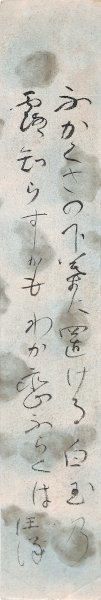 ふかくさの下葉に置ける白玉乃
露知らすかもわか恋ふらくは